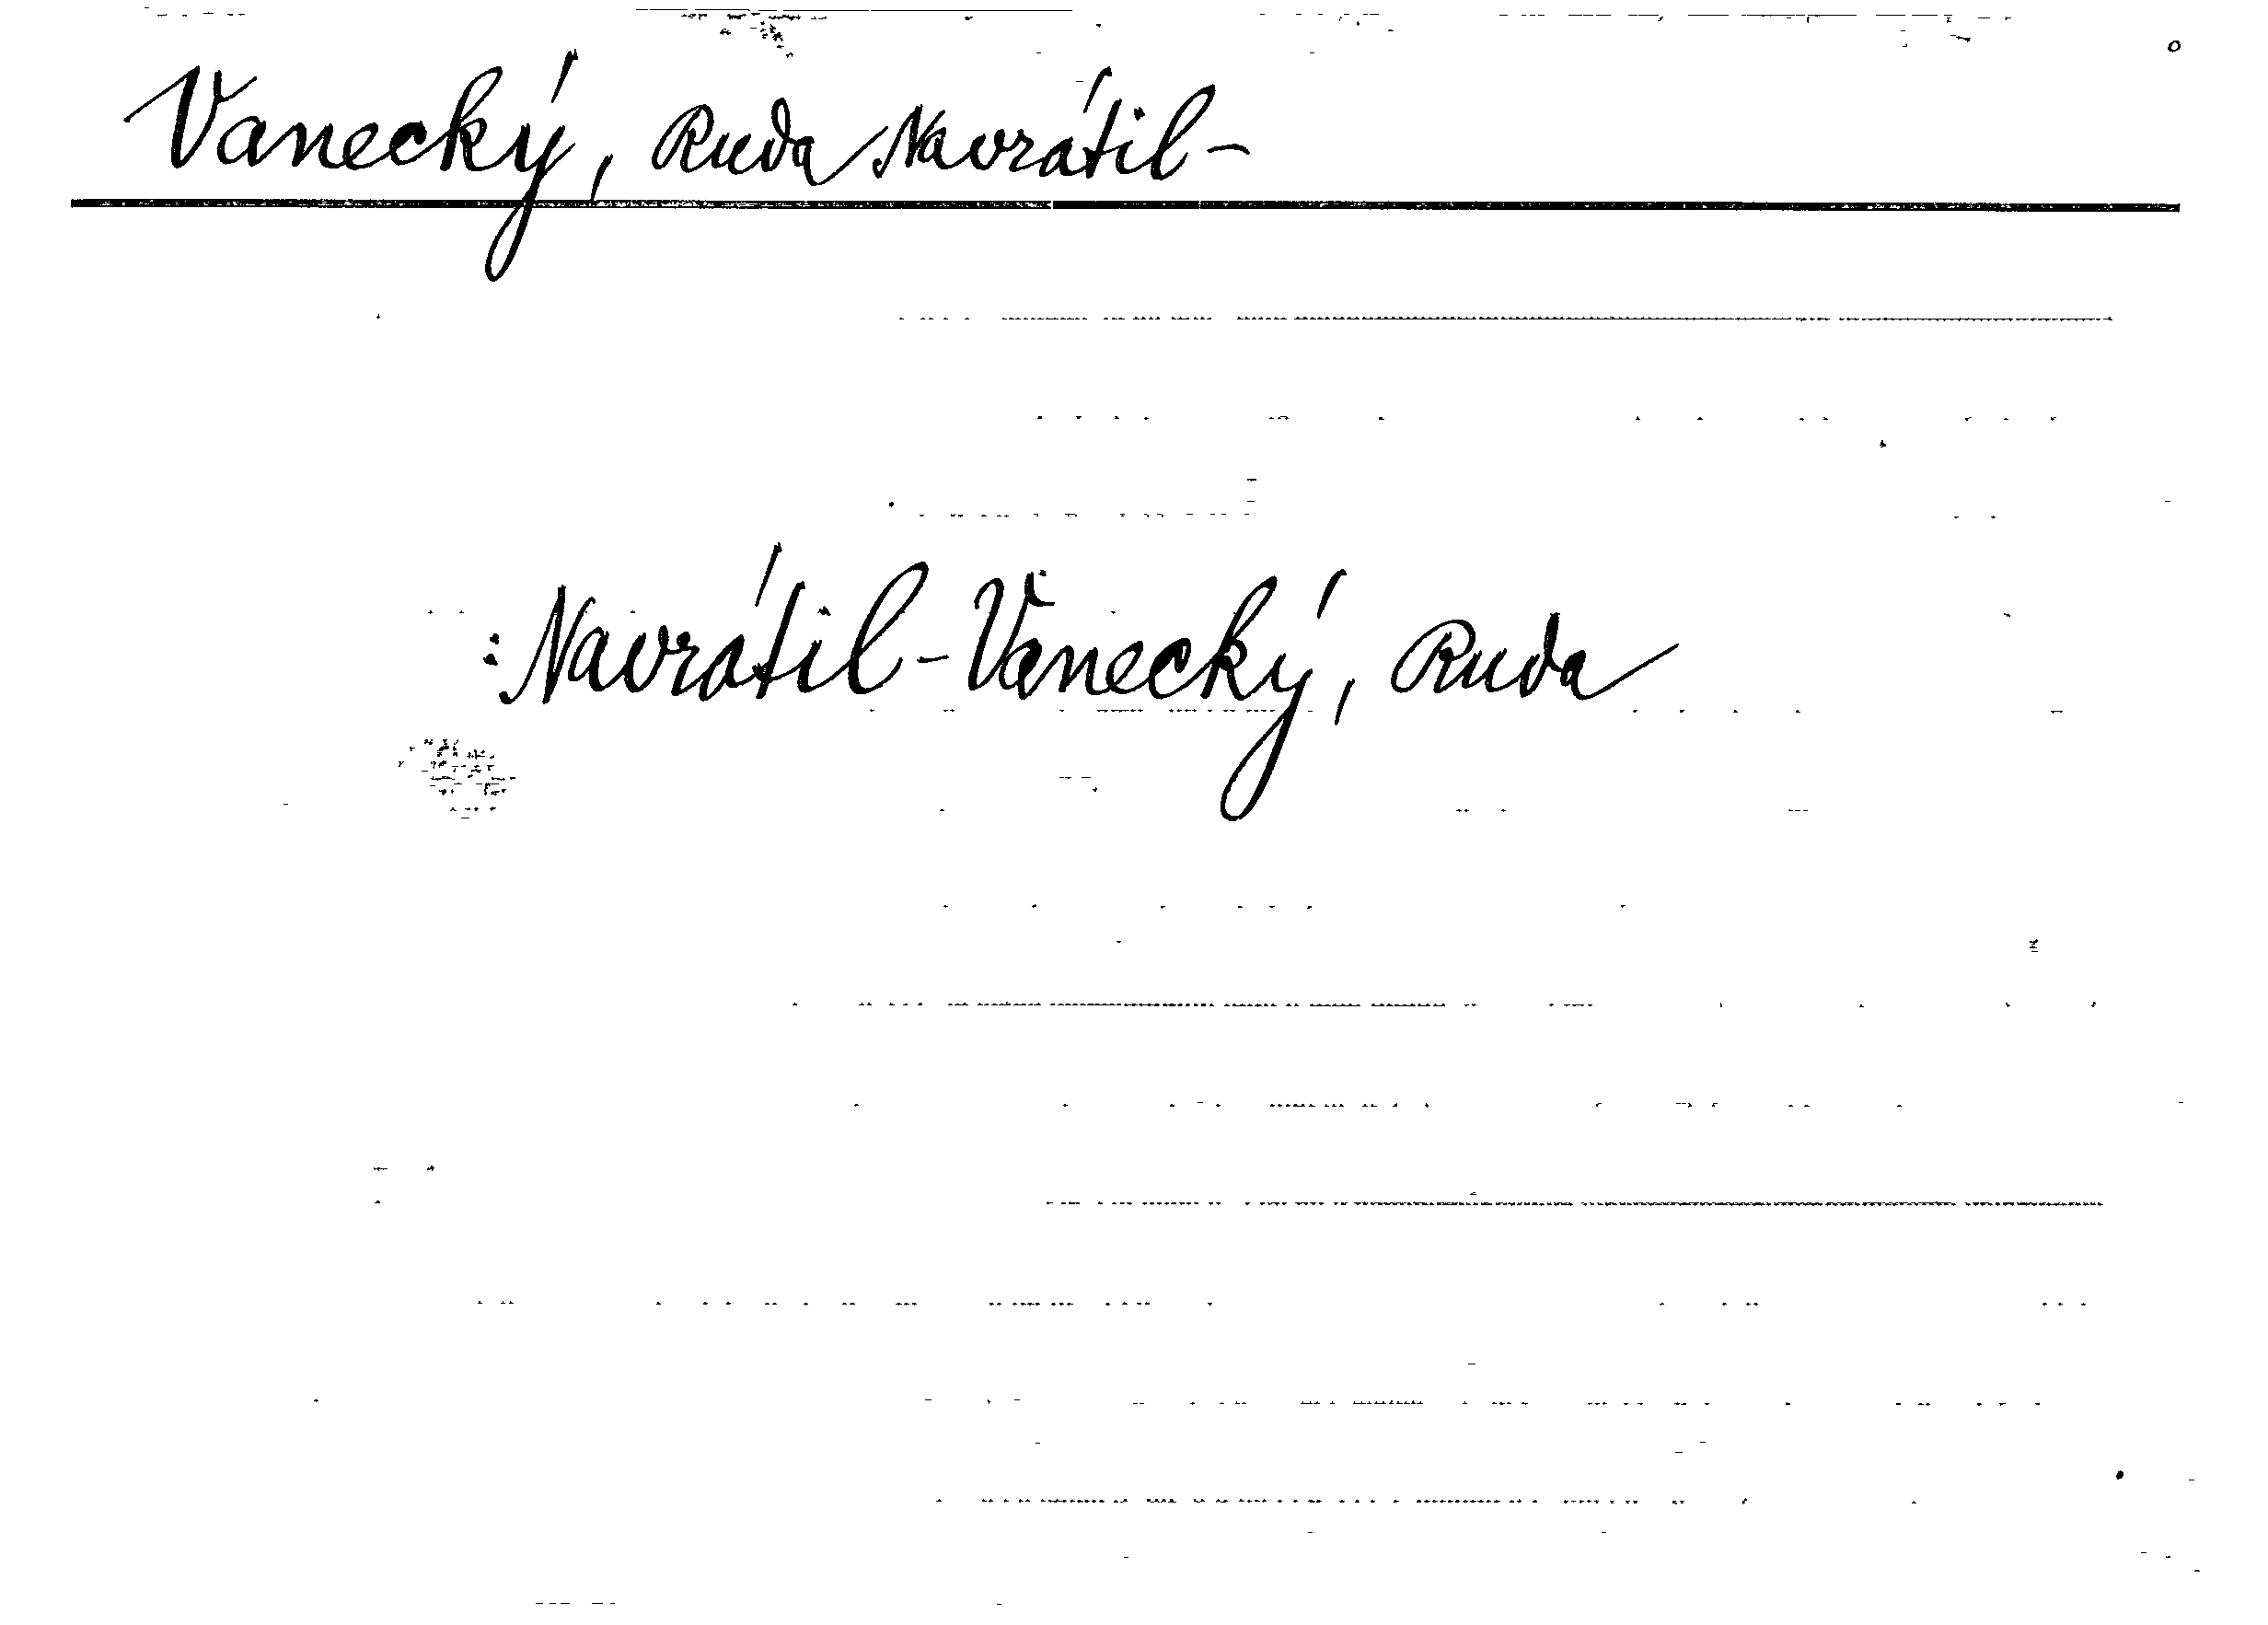 Vanecký, Ruda Navrátil-
:Navrátil-Vanecký, Ruda